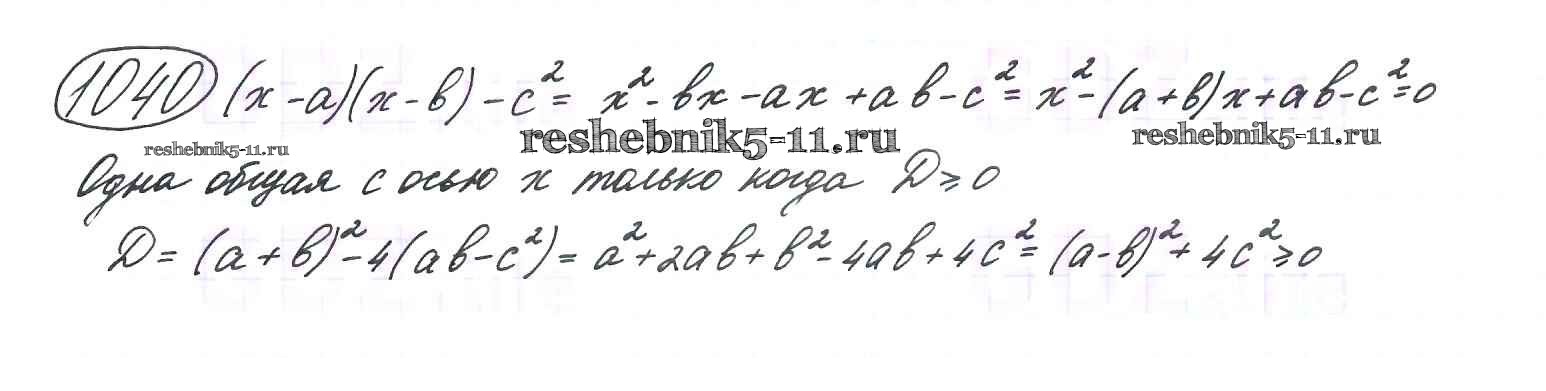 1040 (x-a)(x-в)-c²= x²-вx-ax+aв-c²=x²-(a+в)x+aв-c²=0
reshebnik5-11.ru reshebnik5-11.ru reshebnik5-11.ru
Одна общая с осью x только когда D≥0
D=(a+в)²-4(aв-c²)=a²+2aв+в²-4aв+4c²=(a-в)²+4c²≥0